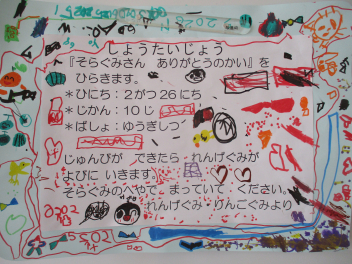 しょうたいじょう
『そらぐみさん ありがとうのかい』を
ひらきます。
*ひにち：2がつ26にち
*じかん：10じ
*ばしょ：ゆうぎしつ
じゅんびが できたら れんげぐみが
よびに いきます。
そらぐみのへやで まっていて ください。
れんげぐみ・りんごぐみより